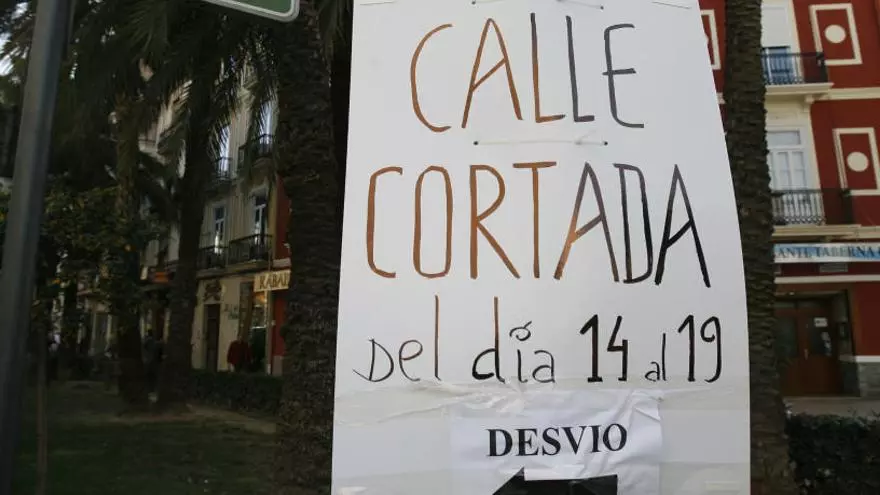 CALLE
CORTADA
Del día 14 al 19
DESVIO
TABERNA